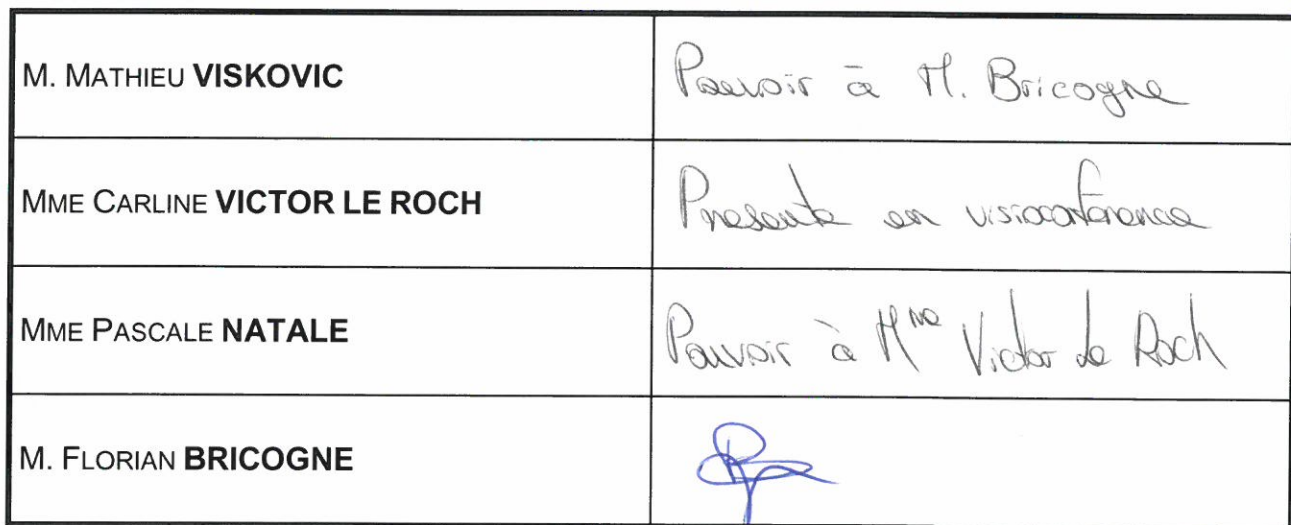 M. MATHIEU VISKOVIC
Pouvoir à M. Bricogne
MME CARLINE VICTOR LE ROCH
Présente en visioconférence
MME PASCALE NATALE
Pouvoir à Mme Victor le Roch
M. FLORIAN BRICOGNE